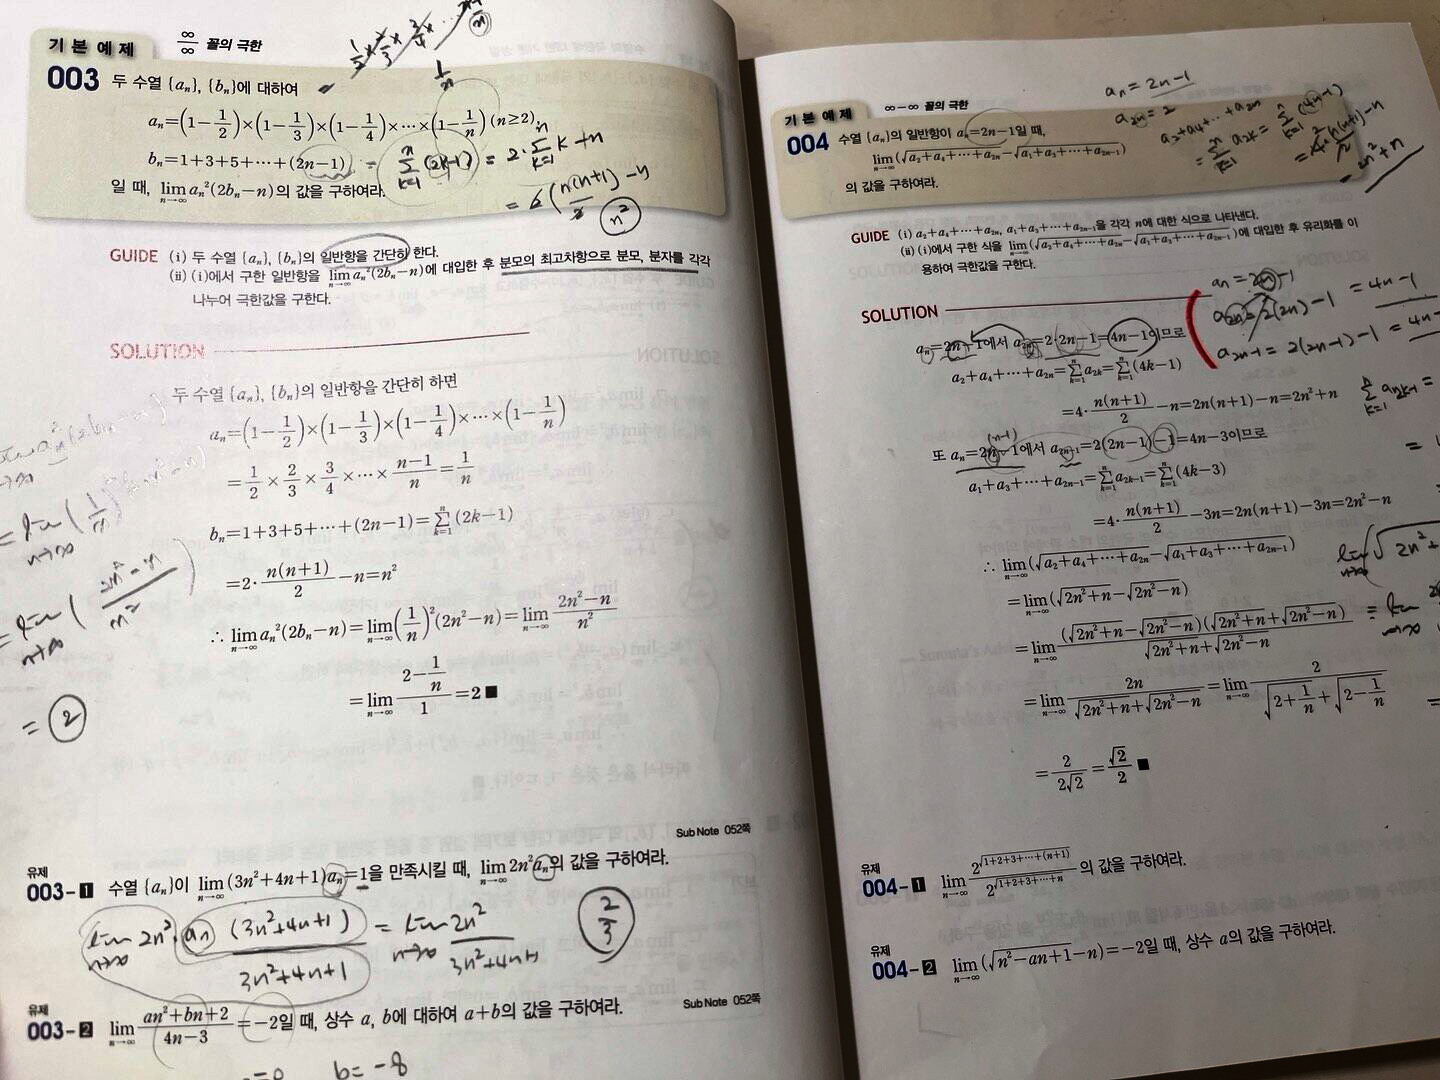 기본예제 ∞/∞ 꼴의 극한
1/2 × 2/3 × 3/4 ×
1/n
003 두 수열 {aₙ}, {bₙ}에 대하여
aₙ=(1-1/2)×(1-1/3)×(1-1/4)×⋯×(1-1/n) (n≥2),
bₙ=1+3+5+⋯+(2n-1) = Σ_{k=1}^{n} (2k-1) = 2·Σ_{k=1}^{n} k + n
일 때, lim_{n→∞} aₙ²(2bₙ-n)의 값을 구하여라.
= 2(n(n+1)/2) - n
n²
GUIDE (i) 두 수열 {aₙ}, {bₙ}의 일반항을 간단히 한다.
(ii) (i)에서 구한 일반항을 lim_{n→∞} aₙ²(2bₙ-n)에 대입한 후 분모의 최고차항으로 분모, 분자를 각각
나누어 극한값을 구한다.
SOLUTION
두 수열 {aₙ}, {bₙ}의 일반항을 간단히 하면
aₙ=(1-1/2)×(1-1/3)×(1-1/4)×⋯×(1-1/n)
=1/2×2/3×3/4×⋯×(n-1)/n=1/n
bₙ=1+3+5+⋯+(2n-1)=Σ_{k=1}^{n} (2k-1)
=2·n(n+1)/2-n=n²
∴ lim_{n→∞} aₙ²(2bₙ-n)=lim_{n→∞} (1/n)²(2n²-n)=lim_{n→∞} (2n²-n)/n²
=lim_{n→∞} (2-1/n)/1=2 ■
= lim_{n→∞} (1/n)²
= lim_{n→∞} (2n²-n)/n²
= 2
Sub Note 052쪽
유제
003-1 수열 {aₙ}이 lim_{n→∞} (3n²+4n+1)aₙ=1을 만족시킬 때, lim_{n→∞} 2n²aₙ의 값을 구하여라.
lim_{n→∞} 2n²·aₙ (3n²+4n+1)/(3n²+4n+1) = lim_{n→∞} 2n²/(3n²+4n+1)
2/3
유제
003-2 lim_{n→∞} (an²+bn+2)/(4n-3)=-2일 때, 상수 a, b에 대하여 a+b의 값을 구하여라.
Sub Note 052쪽
b=-8
기본예제 ∞-∞ 꼴의 극한
aₙ=2n-1
004 수열 {aₙ}의 일반항이 aₙ=2n-1일 때,
lim_{n→∞} (√(a₂+a₄+⋯+a₂ₙ)-√(a₁+a₃+⋯+a₂ₙ₋₁))
의 값을 구하여라.
a₂+a₄+⋯+a₂ₙ
= Σ_{k=1}^{n} a₂ₖ = Σ_{k=1}^{n} (4k-1)
= 2n²+n
GUIDE (i) a₂+a₄+⋯+a₂ₙ, a₁+a₃+⋯+a₂ₙ₋₁을 각각 n에 대한 식으로 나타낸다.
(ii) (i)에서 구한 식을 lim_{n→∞} (√(a₂+a₄+⋯+a₂ₙ)-√(a₁+a₃+⋯+a₂ₙ₋₁))에 대입한 후 유리화를 이
용하여 극한값을 구한다.
aₙ=2n-1
a₂ₙ=2(2n)-1 = 4n-1
a₂ₙ₋₁=2(2n-1)-1 = 4n-
SOLUTION
aₙ=2n-1에서 a₂ₙ=2·2n-1=4n-1이므로
a₂+a₄+⋯+a₂ₙ=Σ_{k=1}^{n} a₂ₖ=Σ_{k=1}^{n} (4k-1)
=4·n(n+1)/2-n=2n(n+1)-n=2n²+n
Σ_{k=1}^{n} a₂ₖ₋₁ =
(n-1)
또 aₙ=2n-1에서 a₂ₙ₋₁=2(2n-1)-1=4n-3이므로
a₁+a₃+⋯+a₂ₙ₋₁=Σ_{k=1}^{n} a₂ₖ₋₁=Σ_{k=1}^{n} (4k-3)
=4·n(n+1)/2-3n=2n(n+1)-3n=2n²-n
∴ lim_{n→∞} (√(a₂+a₄+⋯+a₂ₙ)-√(a₁+a₃+⋯+a₂ₙ₋₁))
lim_{n→∞} (√(2n²+
=lim_{n→∞} (√(2n²+n)-√(2n²-n))
=lim_{n→∞} (√(2n²+n)-√(2n²-n))(√(2n²+n)+√(2n²-n))/(√(2n²+n)+√(2n²-n))
= lim_{n→∞}
=lim_{n→∞} 2n/(√(2n²+n)+√(2n²-n))=lim_{n→∞} 2/(√(2+1/n)+√(2-1/n))
=2/(2√2)=√2/2 ■
유제
004-1 lim_{n→∞} 2^√(1+2+3+⋯+(n+1))/2^√(1+2+3+⋯+n)의 값을 구하여라.
유제
004-2 lim_{n→∞} (√(n²-an+1)-n)=-2일 때, 상수 a의 값을 구하여라.